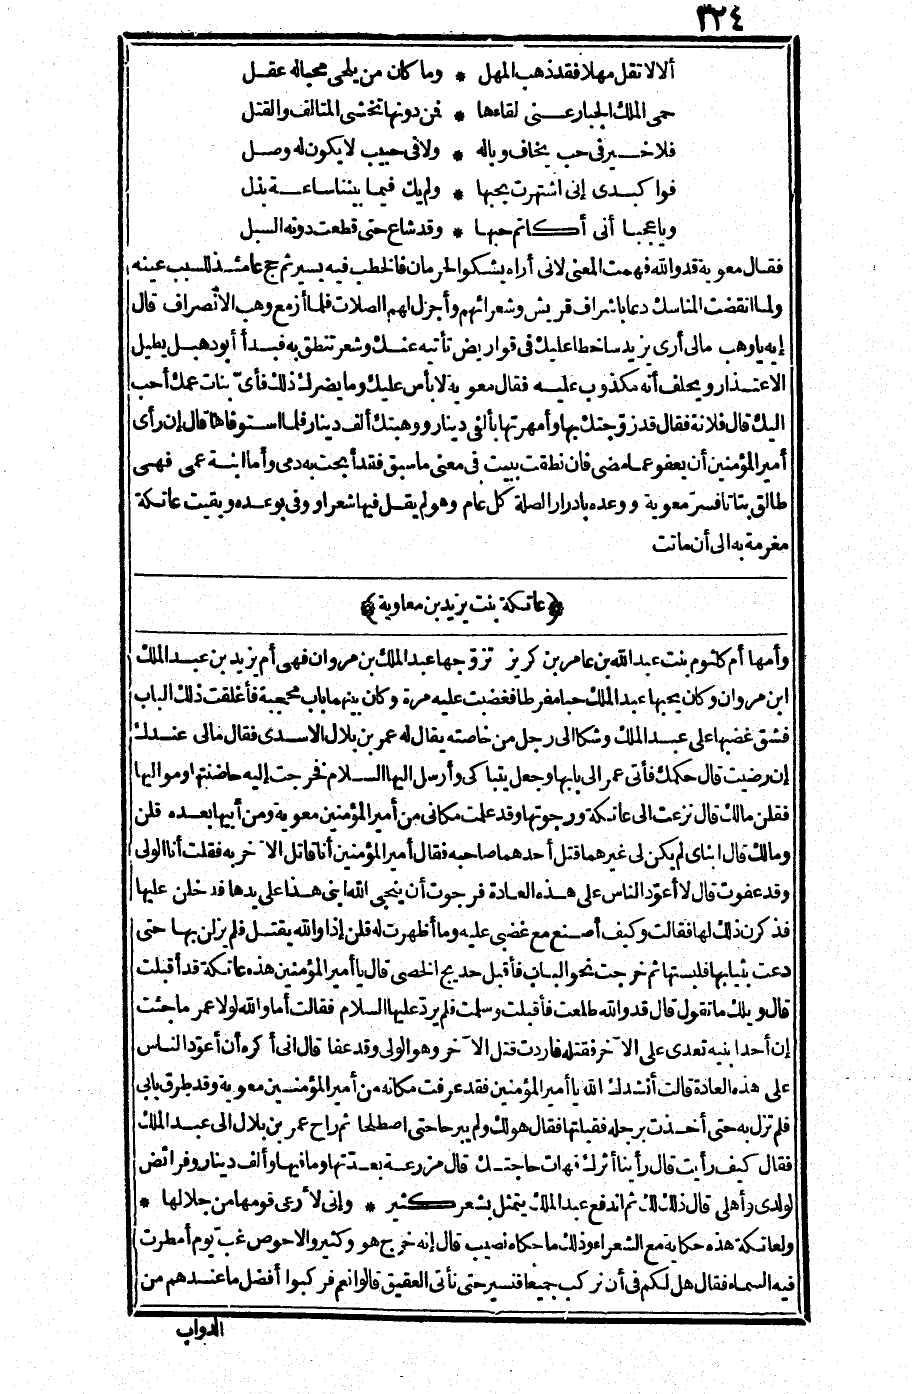 ٣٢٤
ألا لا تقل مهلا فقد ذهب المهل * وما كان من يلحى محبا له عقل
حمى الملك الجبار عنى لقاءها * فمن دونها تخشى المتالف والقتل
فلا خير فى حب يخاف وباله * ولا فى حبيب لا يكون له وصل
فوا كبدى إنى اشتهرت بحبها * ولم يك فيما بيننا ساعة بذل
ويا عجبا أنى أكاتم حبها * وقد شاع حتى قطعت دونه السبل
فقال معوية قد والله فهمت المعنى لانى أراه يشكو الحرمان فالخطب فيه يسير ثم حج عامئذ للسبب عينه
ولما انقضت المناسك دعا باشراف قريش وشعرائهم وأجزل لهم الصلات فلما أزمع وهب الانصراف قال
إيه يا وهب مالى أرى يزيد ساخطا عليك فى قواريض تأتيه عنك وشعر تنطق به فبدأ أبو دهبل يطيل
الاعتذار ويحلف أنه مكذوب عليه فقال معوية لا بأس عليك وما يضرك ذلك فأىّ بنات عمك أحب
اليك قال فلانة فقال قد زوّجتك بها وأمهرتها بألفى دينار ووهبتك ألف دينار فلما استوفاها قال إن رأى
أمير المؤمنين أن يعفو عما مضى فان نطقت ببيت فى معنى ما سبق فقد أبحت به دمى وأما ابنة عمى فهى
طالق بتاتا فسرّ معوية ووعده بادرار الصلة كل عام وهو لم يقل فيها شعرا ووفى بوعده وبقيت عاتكة
مغرمة به الى أن ماتت
﴿عاتكة بنت يزيد بن معاوية﴾
وأمها أم كلثوم بنت عبد الله بن عامر بن كريز تزوّجها عبد الملك بن مروان فهى أم يزيد بن عبد الملك
ابن مروان وكان يحبها عبد الملك حبا مفرطا فغضبت عليه مرة وكان بينهما باب محجبة فأغلقت ذلك الباب
فشق غضبها على عبد الملك وشكا الى رجل من خاصته يقال له عمر بن بلال الاسدى فقال مالى عندك
إن رضيت قال حكمك فأتى عمر الى بابها وجعل يتباكى وأرسل اليها السلام فخرجت إليه حاضنتها ومواليها
فقلن مالك قال نزعت الى عاتكة ورجوتها وقد علمت مكانى من أمير المؤمنين معوية ومن أبيها بعده قلن
ومالك قال ابناى لم يكن لى غيرهما قتل أحدهما صاحبه فقال أمير المؤمنين أنا قاتل الآخر به فقلت أنا الولى
وقد عفوت قال لا أعوّد الناس على هذه العادة فرجوت أن ينجى الله ابنى هذا على يدها فدخلن عليها
فذكرن ذلك لها فقالت وكيف أصنع مع غضبى عليه وما أظهرت له قلن إذا والله يقتل فلم يزلن بها حتى
دعت بثيابها فلبستها ثم خرجت نحو الباب فأقبل حديج الخصى قال يا أمير المؤمنين هذه عاتكة قد أقبلت
قال ويلك ما تقول قال قد والله طلعت فأقبلت وسلمت فلم يردّ عليها السلام فقالت أما والله لولا عمر ما جئت
إن أحد ابنيه تعدى على الآخر فقتله فاردت قتل الآخر وهو الولى وقد عفا قال انى أكره أن أعوّد الناس
على هذه العادة قالت أنشدك الله يا أمير المؤمنين فقد عرفت مكانه من أمير المؤمنين معوية وقد طرق بابى
فلم تزل به حتى أخذت برجله فقبلتها فقال هو لك ولم يبرحا حتى اصطلحا ثم راح عمر بن بلال الى عبد الملك
فقال كيف رأيت قال رأينا أثرك فهات حاجتك قال مزرعة بعدّتها وما فيها وألف دينار وفرائض
لولدى وأهلى قال ذلك لك ثم اندفع عبد الملك يتمثل بشعر كثير * وإنى لأرعى قومها من جلالها *
ولعاتكة هذه حكاية مع الشعراء وذلك ما حكاه نصيب قال إنه خرج هو وكثير والاحوص غب يوم أمطرت
فيه السماء فقال هل لكم فى أن نركب جميعا فنسير حتى نأتى العقيق قالوا نعم فركبوا أفضل ما عندهم من
الدواب